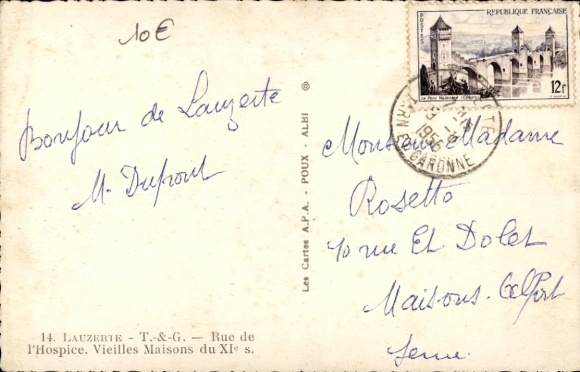 10€
RÉPUBLIQUE FRANÇAISE
POSTES
Le Pont Valentré (Cahors)
12f
TARN ET GARONNE
1956
Bonjour de Lauzerte
M. Dupont
Les Cartes A.P.A. - POUX - ALBI ®
Monsieur Madame
Rosetto
10 rue Et. Dolet
Maisons-Alfort
Seine
14. LAUZERTE - T.-&-G. — Rue de
l'Hospice. Vieilles Maisons du XIe s.